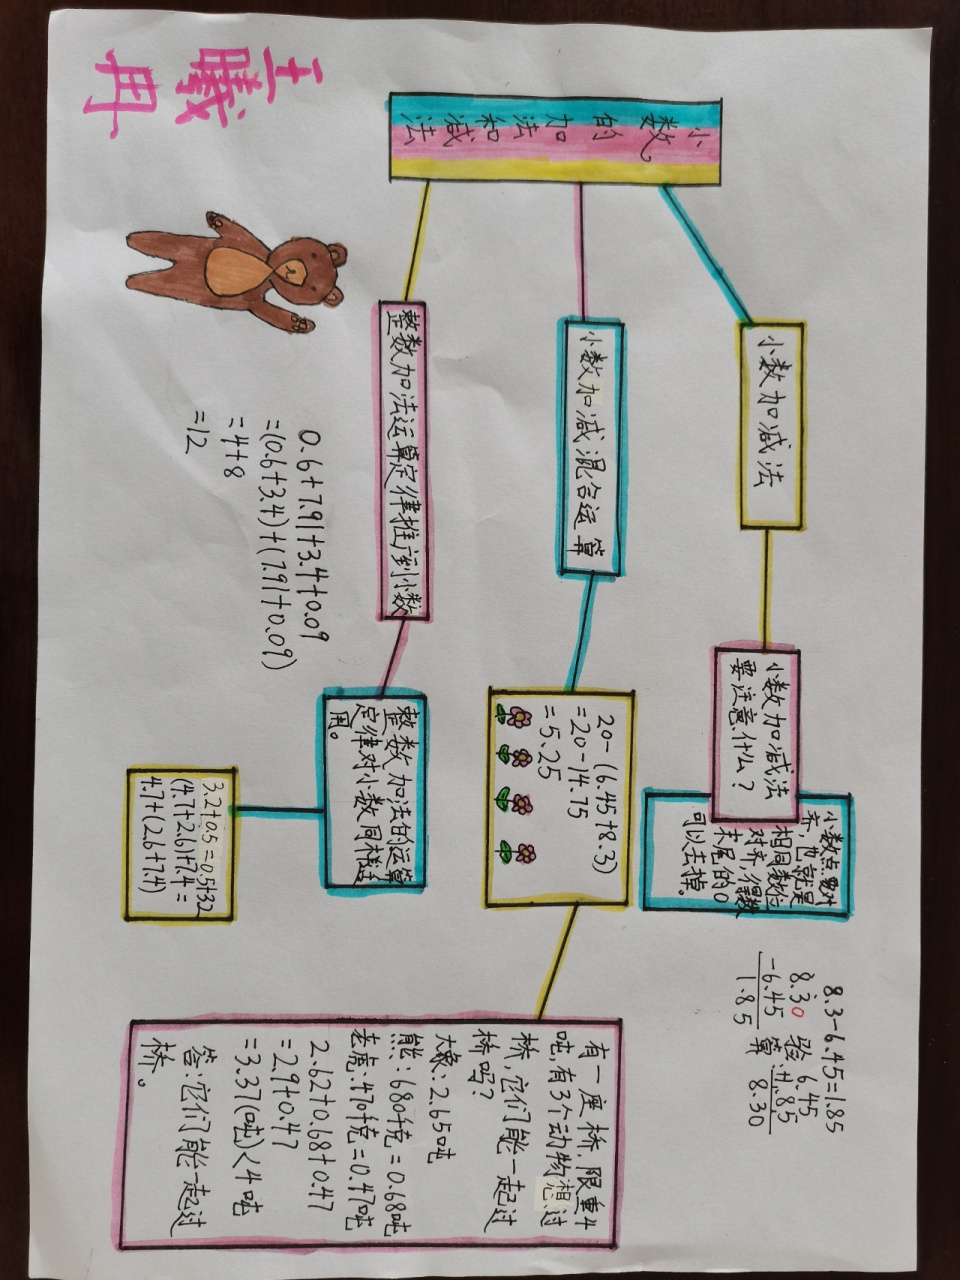 王曦冉
小数的加法和减法
小数加减法
小数加减法
要注意什么?
小数点要对
齐,也就是
相同数位
对齐,得数
末尾的0
可以去掉。
8.3-6.45=1.85
8.30 验 6.45
-6.45 算 +1.85
1.85 8.30
小数加减混合运算
20-(6.45+8.3)
=20-14.75
=5.25
有一座桥,限重4
吨,有3个动物想过
桥,它们能一起过
桥吗?
大象:2.65吨
熊:680千克=0.68吨
老虎:470千克=0.47吨
2.62+0.68+0.47
=2.9+0.47
=3.37(吨)<4吨
答:它们能一起过
桥。
整数加法运算定律推广到小数
整数加法的运算
定律对小数同样适
用。
3.2+0.5=0.5+3.2
(4.7+2.6)+7.4=
4.7+(2.6+7.4)
0.6+7.91+3.4+0.09
=(0.6+3.4)+(7.91+0.09)
=4+8
=12